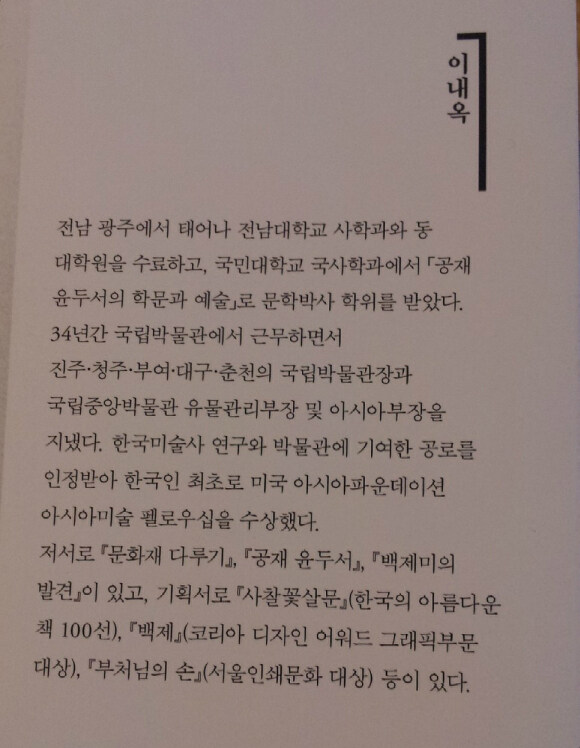 이내옥
전남 광주에서 태어나 전남대학교 사학과와 동
대학원을 수료하고, 국민대학교 국사학과에서 「공재
윤두서의 학문과 예술」로 문학박사 학위를 받았다.
34년간 국립박물관에서 근무하면서
진주·청주·부여·대구·춘천의 국립박물관장과
국립중앙박물관 유물관리부장 및 아시아부장을
지냈다. 한국미술사 연구와 박물관에 기여한 공로를
인정받아 한국인 최초로 미국 아시아파운데이션
아시아미술 펠로우십을 수상했다.
저서로 『문화재 다루기』, 『공재 윤두서』, 『백제미의
발견』이 있고, 기획서로 『사찰꽃살문』(한국의 아름다운
책 100선), 『백제』(코리아 디자인 어워드 그래픽부문
대상), 『부처님의 손』(서울인쇄문화 대상) 등이 있다.